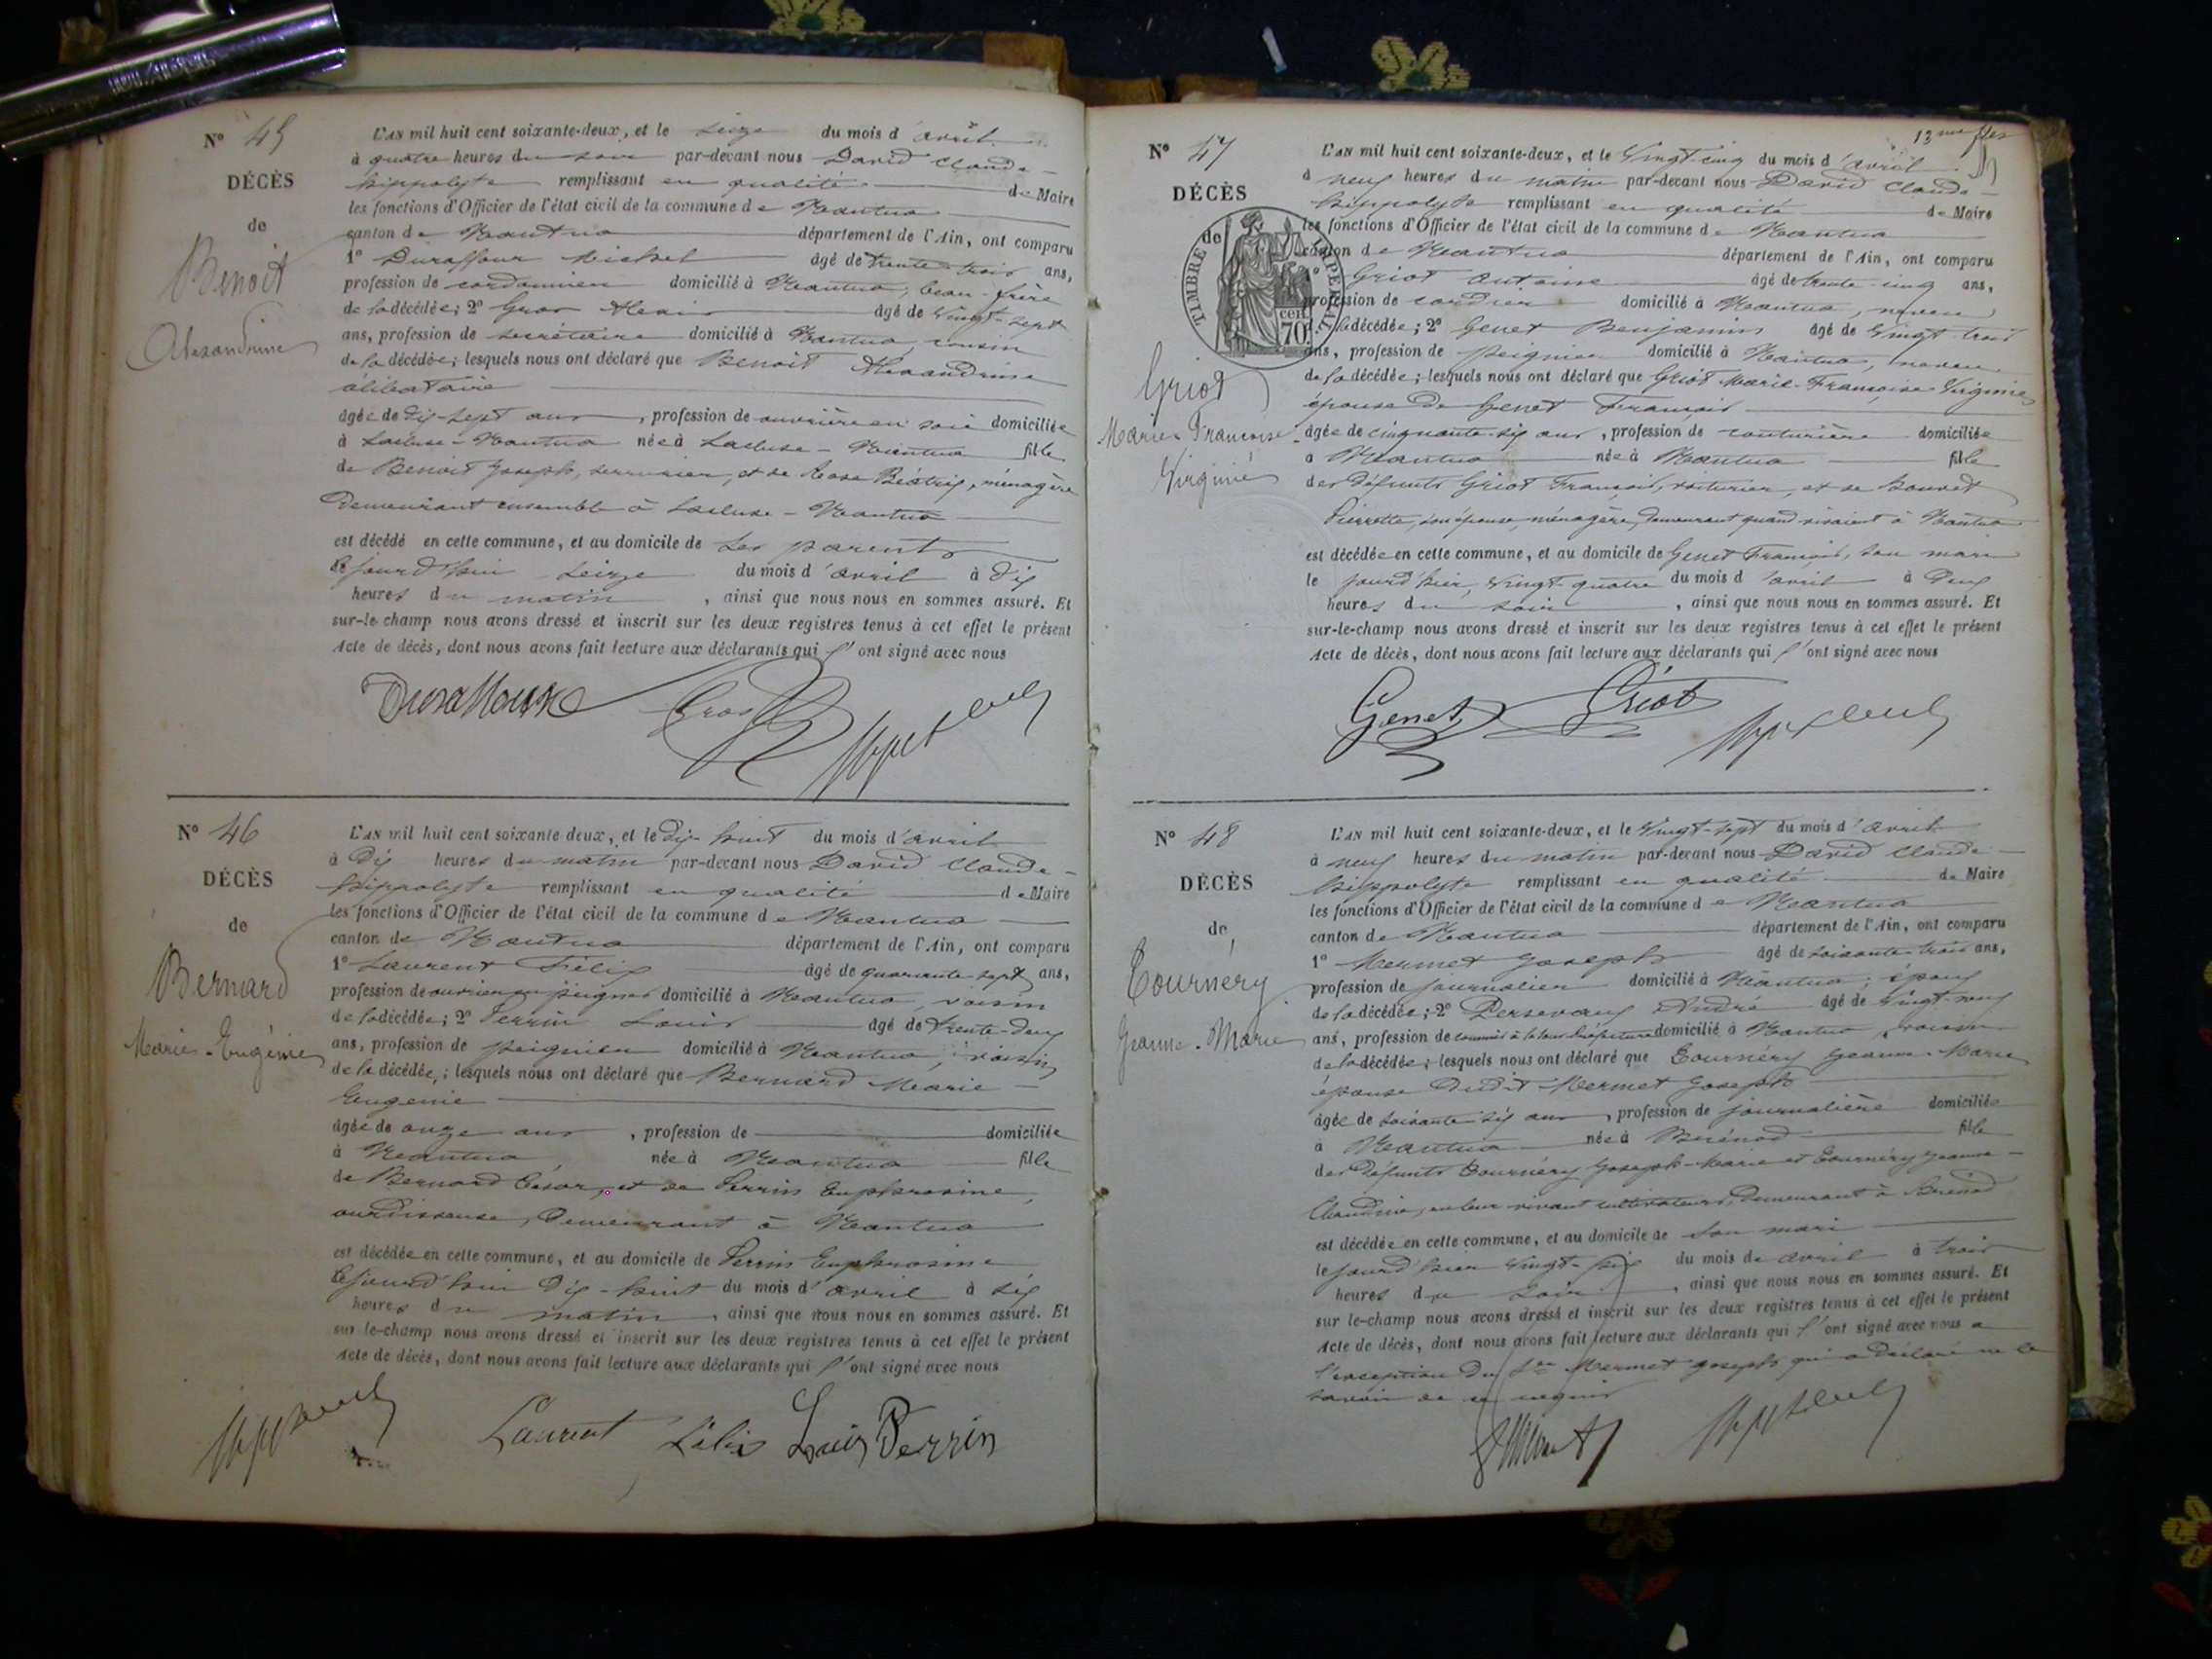 N° 45
DÉCÈS
de
Benoit
Alexandrine
L'AN mil huit cent soixante-deux, et le seize du mois d'avril
à quatre heures du soir par-devant nous David Claude-
hippolyte remplissant en qualité de Maire
les fonctions d'Officier de l'état civil de la commune de Nantua
canton de Nantua département de l'Ain, ont comparu
1° Duraffour Michel âgé de trente-trois ans,
profession de cordonnier domicilié à Nantua, beau-frère
de la décédée; 2° Gros Alexis âgé de vingt-sept
ans, profession de secrétaire domicilié à Nantua, cousin
de la décédée; lesquels nous ont déclaré que Benoit Alexandrine
célibataire
âgée de dix-sept ans, profession de ouvrière en soie domiciliée
à Lacluse-Nantua née à Lacluse-Nantua fille
de Benoit Joseph, serrurier, et de Rose Béatrix, ménagère
demeurant ensemble à Lacluse-Nantua
est décédé en cette commune, et au domicile de ses parents
cejourd'hui seize du mois d'avril à dix
heures du matin, ainsi que nous nous en sommes assuré. Et
sur-le-champ nous avons dressé et inscrit sur les deux registres tenus à cet effet le présent
Acte de décès, dont nous avons fait lecture aux déclarants qui l'ont signé avec nous
Duraffour Gros
N° 46
DÉCÈS
de
Bernard
Marie-Eugénie
L'AN mil huit cent soixante deux, et le dix-huit du mois d'avril
à dix heures du matin par-devant nous David Claude-
hippolyte remplissant en qualité de Maire
les fonctions d'Officier de l'état civil de la commune de Nantua
canton de Nantua département de l'Ain, ont comparu
1° Laurent Félix âgé de quarante-sept ans,
profession de ouvrier en peignes domicilié à Nantua, voisin
de la décédée; 2° Perrin Louis âgé de trente-deux
ans, profession de peignier domicilié à Nantua, voisin
de la décédée; lesquels nous ont déclaré que Bernard Marie-
Eugenie
âgée de onze ans, profession de domiciliée
à Nantua née à Nantua fille
de Bernard César, et de Perrin Euphrosine,
ourdisseuse, demeurant à Nantua
est décédée en cette commune, et au domicile de Perrin Euphrosine
cejourd'hui dix-huit du mois d'avril à six
heures du matin, ainsi que nous nous en sommes assuré. Et
sur le-champ nous avons dressé et inscrit sur les deux registres tenus à cet effet le présent
Acte de décès, dont nous avons fait lecture aux déclarants qui l'ont signé avec nous
Laurent Félix Louis Perrin
13me
N° 47
DÉCÈS
de
TIMBRE IMPÉRIAL
70 cen.
Griot
Marie-Françoise
Virginie
L'AN mil huit cent soixante-deux, et le vingt-cinq du mois d'avril
à neuf heures du matin par-devant nous David Claude-
hippolyte remplissant en qualité de Maire
les fonctions d'Officier de l'état civil de la commune de Nantua
canton de Nantua département de l'Ain, ont comparu
1° Griot Antoine âgé de trente-cinq ans,
profession de cordier domicilié à Nantua, neveu
de la décédée; 2° Genet Benjamin âgé de vingt-trois
ans, profession de peignier domicilié à Nantua, neveu
de la décédée; lesquels nous ont déclaré que Griot Marie-Françoise Virginie
épouse de Genet François
âgée de cinquante-six ans, profession de couturière domiciliée
à Nantua née à Nantua fille
des défunts Griot François, voiturier, et de Bouvet
Pierrette, son épouse, ménagère, demeurant quand vivaient à Nantua
est décédée en cette commune, et au domicile de Genet François, son mari
le jourd'hier, vingt-quatre du mois d'avril à deux
heures du soir, ainsi que nous nous en sommes assuré. Et
sur-le-champ nous avons dressé et inscrit sur les deux registres tenus à cet effet le présent
Acte de décès, dont nous avons fait lecture aux déclarants qui l'ont signé avec nous
Genet Griot
N° 48
DÉCÈS
de
Tournéry
Jeanne-Marie
L'AN mil huit cent soixante-deux, et le vingt-sept du mois d'avril
à neuf heures du matin par-devant nous David Claude-
hippolyte remplissant en qualité de Maire
les fonctions d'Officier de l'état civil de la commune de Nantua
canton de Nantua département de l'Ain, ont comparu
1° Mermet Joseph âgé de soixante-trois ans,
profession de journalier domicilié à Nantua, époux
de la décédée; 2° André âgé de vingt-neuf
ans, profession de commis à la Sous-Préfecture domicilié à Nantua, voisin
de la décédée; lesquels nous ont déclaré que Tournéry Jeanne-Marie
épouse dudit Mermet Joseph
âgée de soixante-six ans, profession de journalière domiciliée
à Nantua née à Brénod fille
des défunts Tournéry Joseph-Marie et Tournéry Jeanne-
Claudine, en leur vivant cultivateurs, demeurant à Brénod
est décédée en cette commune, et au domicile de son mari
le jourd'hier vingt-six du mois de avril à trois
heures du soir, ainsi que nous nous en sommes assuré. Et
sur le-champ nous avons dressé et inscrit sur les deux registres tenus à cet effet le présent
Acte de décès, dont nous avons fait lecture aux déclarants qui l'ont signé avec nous a
l'exception du Sr Mermet Joseph qui a déclaré ne le
savoir de ce requis